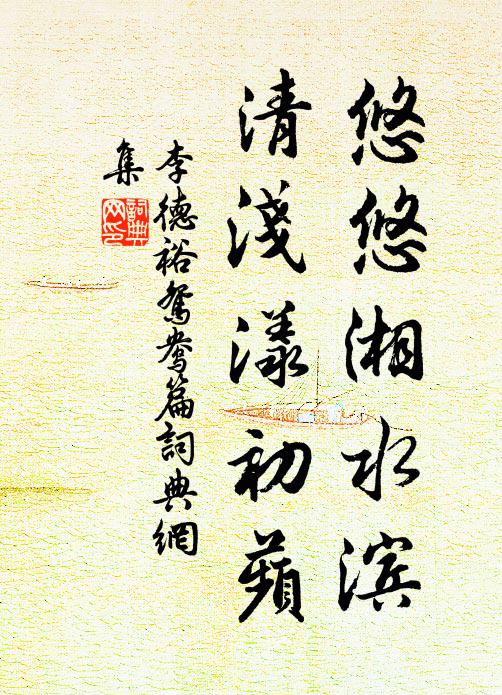 悠悠湘水滨
清浅漾初蘋
李德裕鸳鸯篇詞典網
集
詞典网印